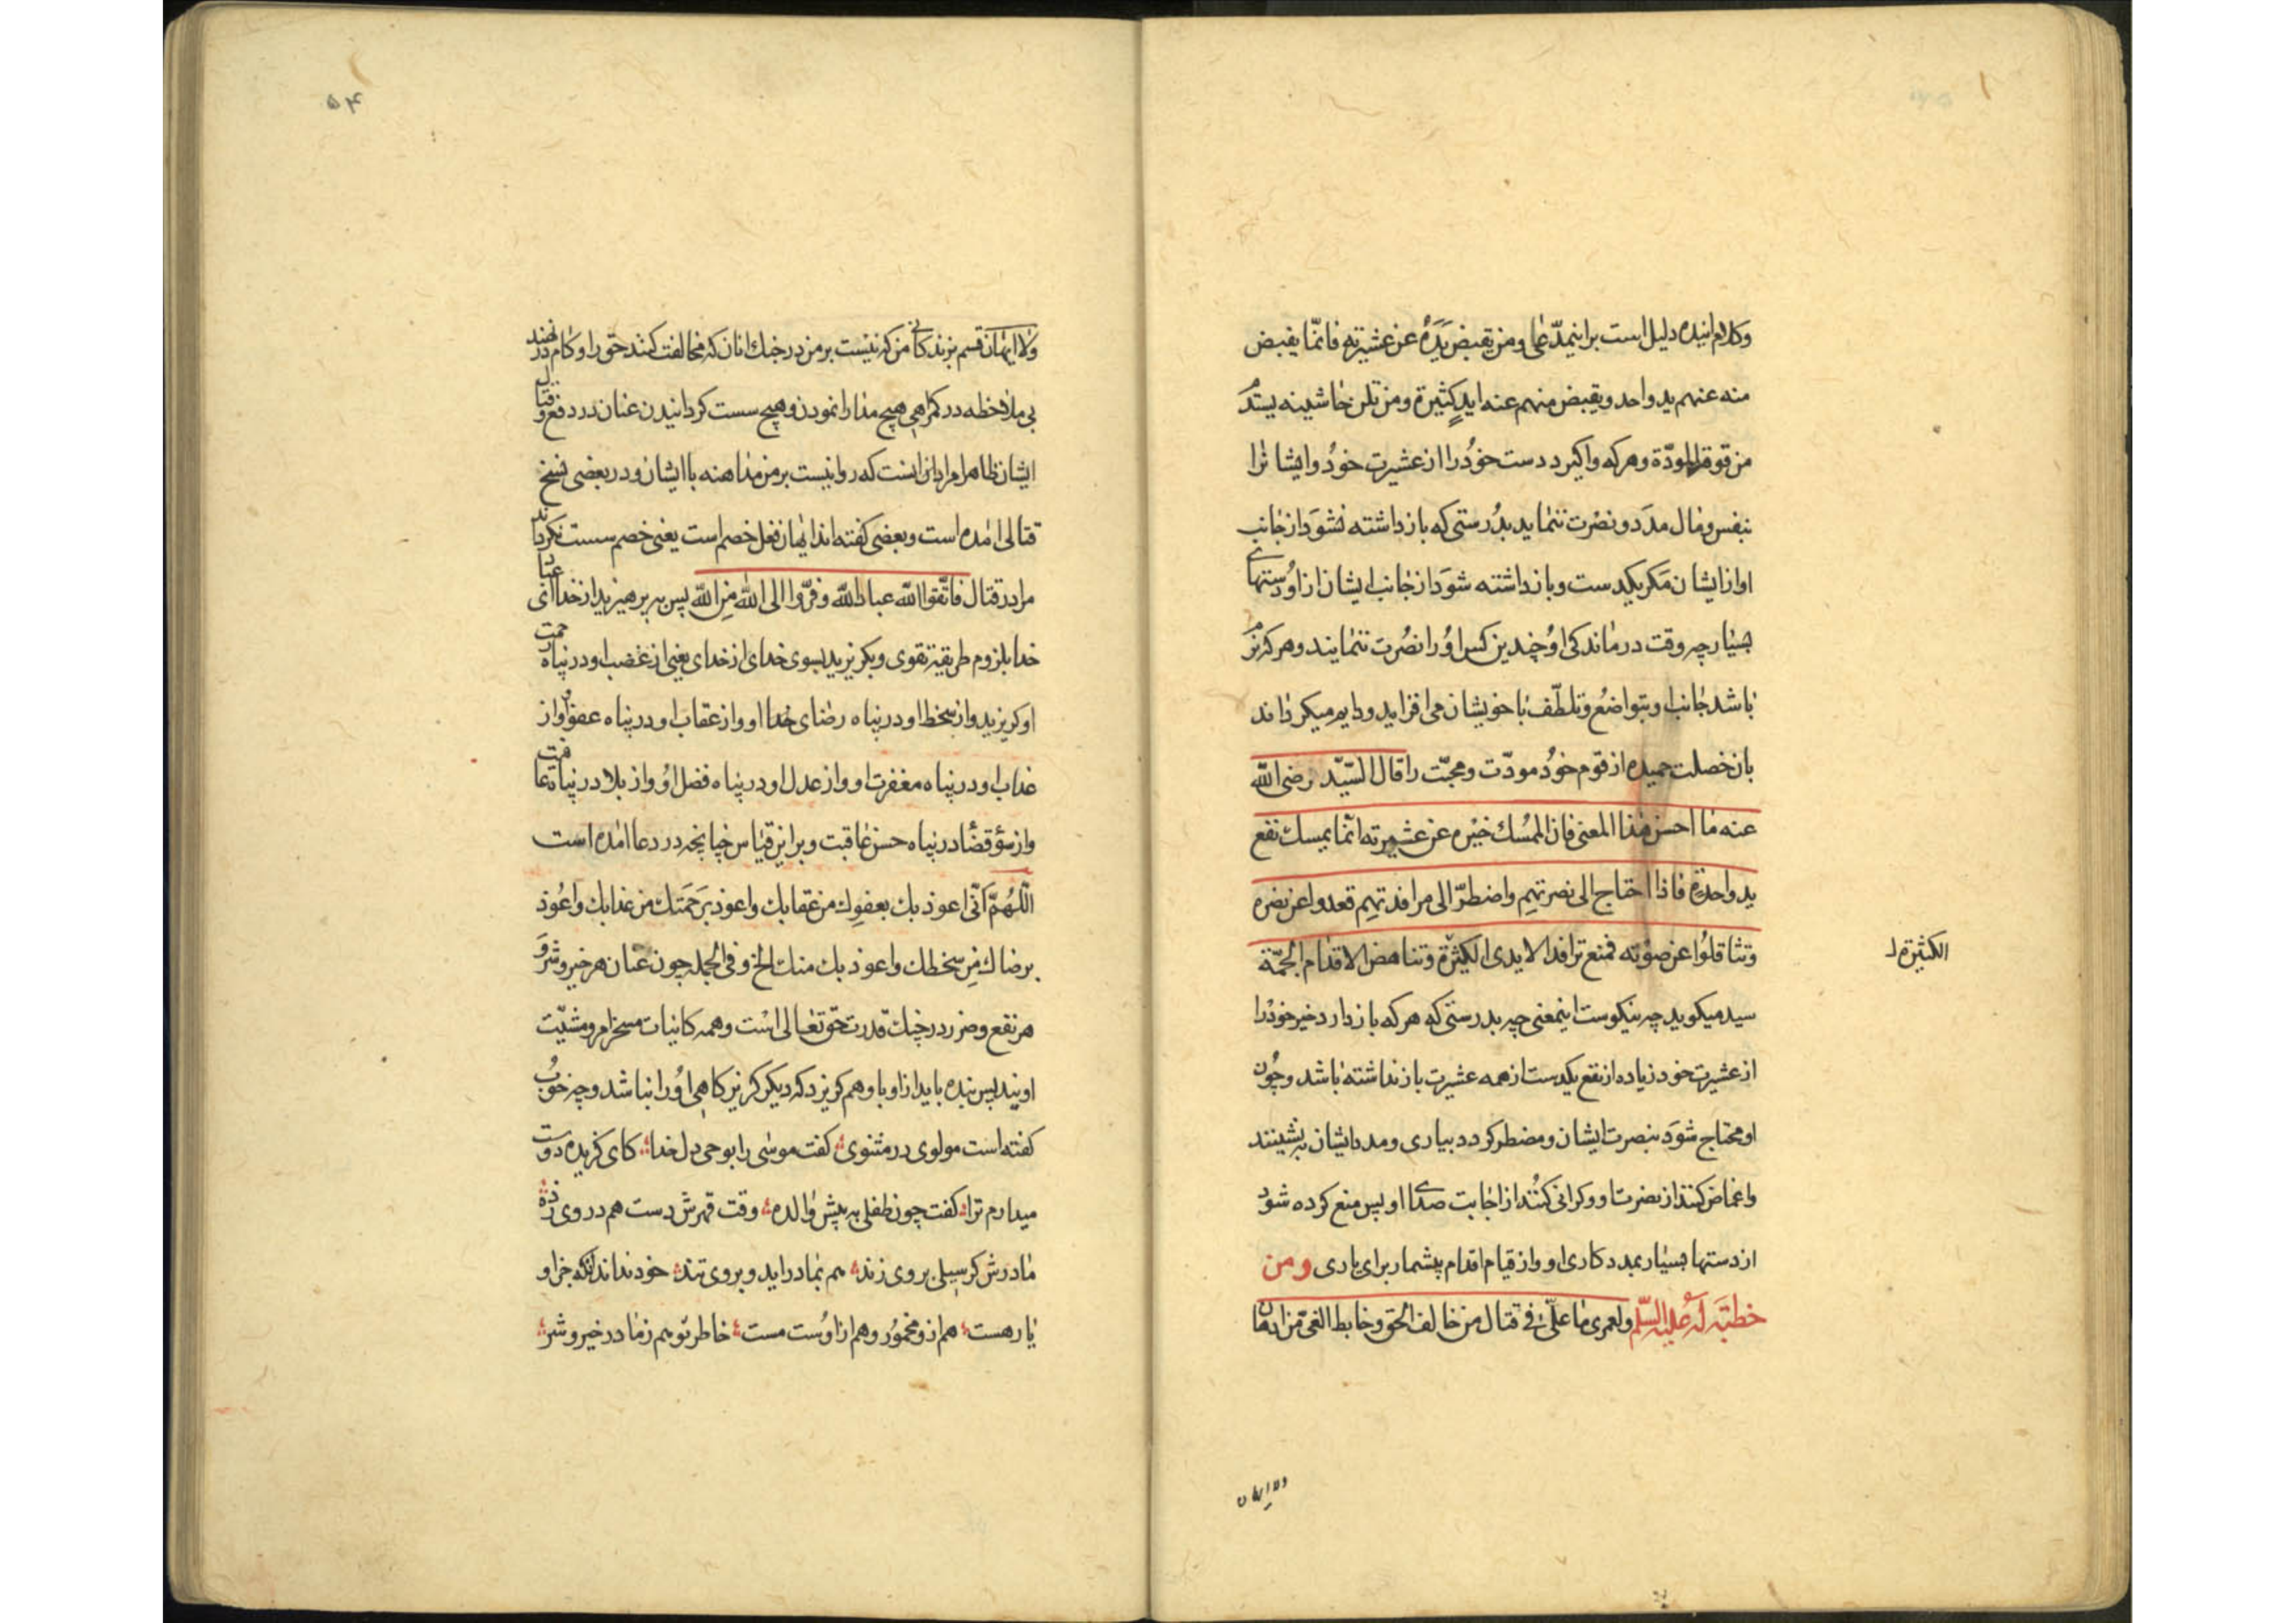 وکلام آینده دلیل است بر اینمدّعا ومن یقبض یَدَهُ عن عشیرته فانّما یقبض
منه عنهم ید واحد ویقبض منهم عنه ایدٍ کثیرة ومن تلن حاشینه یستدم
من قومه المودّة وهرکه واکیرد دست خوُدرا از عشیرت خوُد وایشانرا
بنفس ومال مدَد ونصْرت ننماید بدُرستی که بازداشته نشوَد از جانب
او از ایشان مَکر یکدست وبازداشته شوَد از جانب ایشان از اوُ دستهاے
بسیار چه وقت درماندکی اوُ چندین کس اوُرا نصُرت ننمایند وهرکه نرم
باشد جانب او بتواضُع وتلطّف با خویشان می افزاید ودایم میکرداند
بان خصلت حمیده از قوم خوُد مودّت ومحبّت را قال السّیّد رضی الله
عنه ما احسن هذا المعنی فان الممُسك خیْره عن عشیرته انّما یمسك نفع
ید واحدة فاذا احتاج الی نصرتهم واضطرّ الی مرافدتهم قعدوا عن نصره
وتثاقلوُا عن صوْته فمنع ترافد الایدی الکیثرة وتناهض الاقدام الجمّة
الکثیرة ل
سید میکوید چه نیکوست اینمعنی چه بدرستی که هرکه بازدارد خیر خوْدرا
از عشیرت خود زیاده از نفع یکدست از همه عشیرت بازنداشته باشد وچوُن
او محتاج شوَد بنصرت ایشان ومضطر کردد بیاری ومدد ایشان بنشینند
واغماض کنند از نصرت او وکرانی کنُند از اجابت صداے او پس منع کرده شود
از دستها بسیار بمددکاری او واز قیام اقدام بیشمار برای یاری ومن
خطبَة لَهُ علیه السّلم ولعمری ما علیّ فی قتال من خالف الحق وخابط الغی من ادهان
ولا ایهان
۵۴
ولا ایهان قسم بزندکانی من که نیْست بر من در جنك انان که مخالفت کنند حق را وکام نهند در
بی ملاحظه در کمراهی هیچ مدارا نمودن وهیچ سست کردانیدن عنان در دفع وقتال
ایشان ظاهرا مراد از ان است که روا نیست بر من مداهنه با ایشان ودر بعضی نسخ
قتالی امده است وبعضی کفته اند ایهان فعل خصم است یعنی خصم سست نکرداند
مرا در قتال فاتّقوا الله عباد الله وفرّوا الی الله مِن الله پس بپرهیزید از خدا ای عباد
خدا بلزوم طریقهٔ تقوی وبکریزید بسوی خدای از خدای یعنی از غضب او در پناه رحمت
او کریزید واز سخط او در پناه رضای خدا او واز عقاب او در پناه عفو او واز
عذاب او در پناه مغفرت او واز عدل او در پناه فضل اوُ واز بلا در پناه عافیت
واز سؤ قضا در پناه حسن عاقبت وبر این قیاس چنانچه در دعا امده است
اللّهُمّ انّی اعوذ بك بعفوِك من عقابك واعوذ برَحمَتك من عذابك واعُوذ
برضاك مِن سخطك واعوذ بك منك الخ وفی الجمله چون عنان هر خیر وشرّ وَ
هر نفع وضرر در چنك قدرت حق تعالی است وهمه کاینات مسخر امر ومشیّت
اویند پس بنده باید از او باو هم کریزد که دیکر کریزکاهی اوُرا نباشد وچه خوُب
کفته است مولوی در مثنوی کفت موسی را بوحی دل خدا کای کزیده دوست
میدارم ترا کفت چون طفلی به پیش والده وقت قهرش دست هم در وی زده
مادرش کر سیلی بر وی زند هم بمادر اید وبر وی تند خود نداند که جز او
یار هست هم از و مخموُر وهم از اوُست مست خاطر تو هم ز ما در خیر وشر